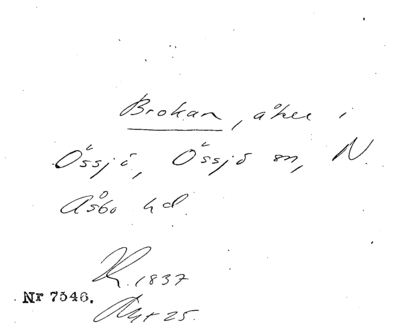 Brokan, åker i
Össjö, Össjö sn, N.
Åsbo hd.
R. 1837
Akt 25.
Nr 7546.